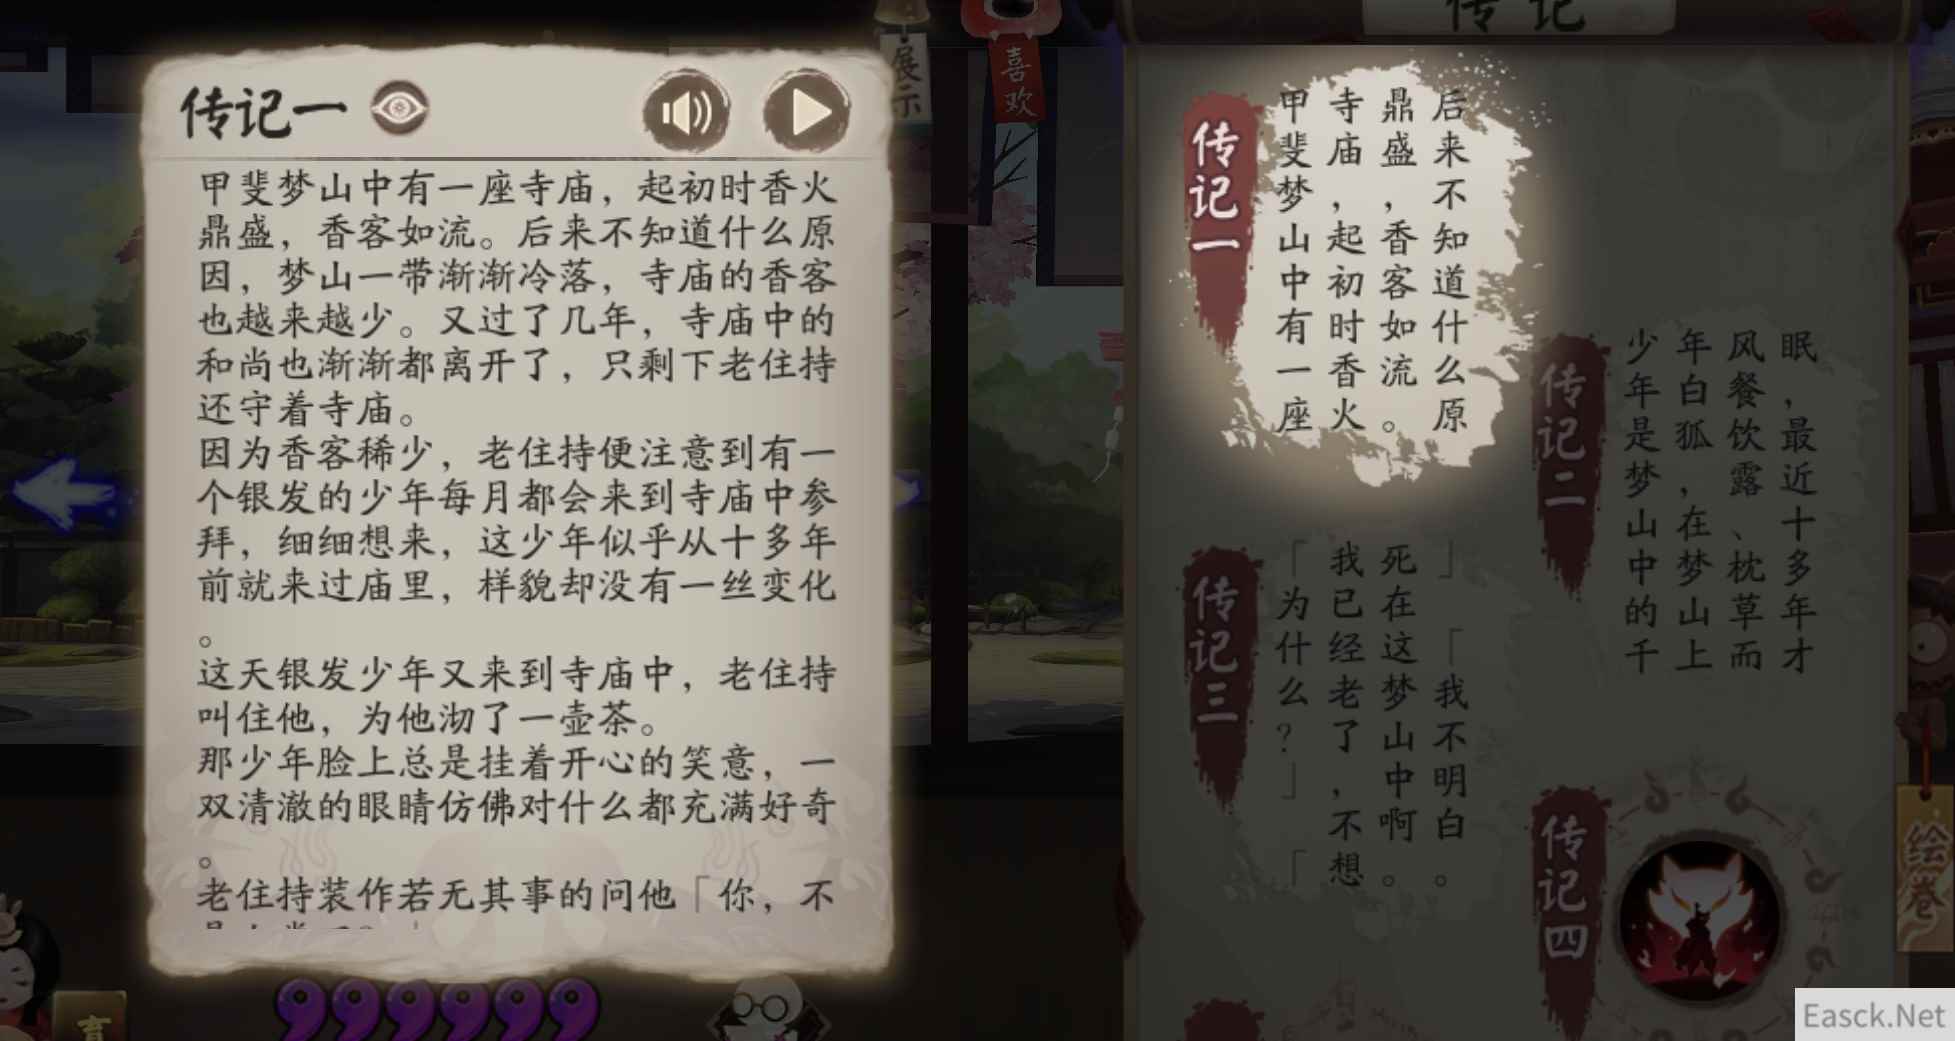 传记一
甲斐梦山中有一座寺庙，起初时香火
鼎盛，香客如流。后来不知道什么原
因，梦山一带渐渐冷落，寺庙的香客
也越来越少。又过了几年，寺庙中的
和尚也渐渐都离开了，只剩下老住持
还守着寺庙。
因为香客稀少，老住持便注意到有一
个银发的少年每月都会来到寺庙中参
拜，细细想来，这少年似乎从十多年
前就来过庙里，样貌却没有一丝变化
。
这天银发少年又来到寺庙中，老住持
叫住他，为他沏了一壶茶。
那少年脸上总是挂着开心的笑意，一
双清澈的眼睛仿佛对什么都充满好奇
。
老住持装作若无其事的问他「你，不
展示
喜欢
传记
传记一
甲斐梦山中有一座
寺庙，起初时香火
鼎盛，香客如流。
后来不知道什么原
传记二
少年是梦山中的千
年白狐，在梦山上
风餐饮露、枕草而
眠，最近十多年才
传记三
「为什么？」「
我已经老了，不想
死在这梦山中啊。
」「我不明白。
传记四
绘卷
育
Easck.Net